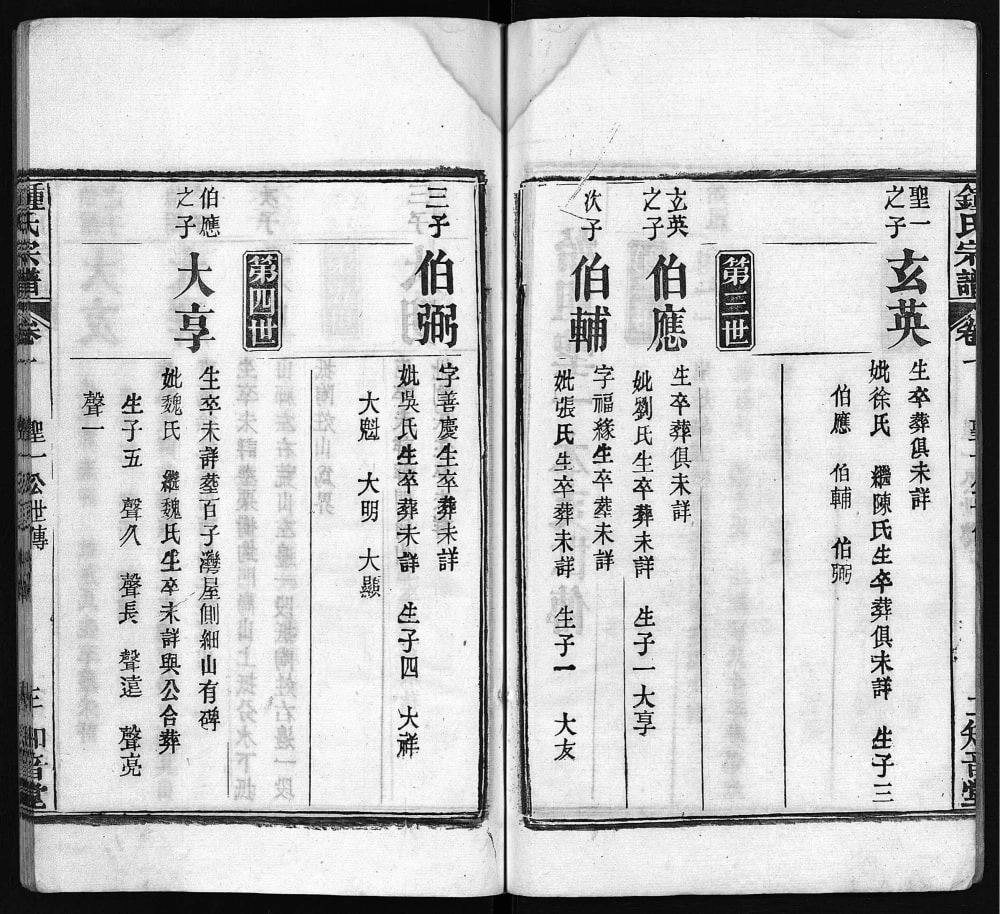 鍾氏宗譜
卷一
聖一公世傳
二
知音堂
聖一
之子
玄英
生卒葬俱未詳
妣徐氏 繼陳氏生卒葬俱未詳 生子三
伯應 伯輔 伯弼
第三世
玄英
之子
伯應
生卒葬俱未詳
妣劉氏生卒葬未詳 生子一大享
次子
伯輔
字福緣生卒葬未詳
妣張氏生卒葬未詳 生子一 大友
三子
伯弼
字善慶生卒葬未詳
妣吳氏生卒葬未詳 生子四 大祥
大魁 大明 大顯
第四世
伯應
之子
大享
生卒未詳塟百子灣屋側細山有碑
妣魏氏 繼魏氏生卒未詳與公合葬
生子五 聲久 聲長 聲遠 聲亮
聲一
鍾氏宗譜
卷一
聖一公世傳
三
知音堂